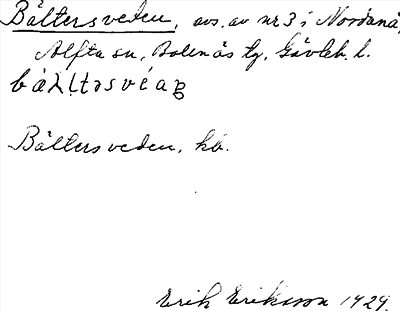 Bältersveden, avs. av nr 3 i Nordanå,
Alfta sn, Bolenäs tg, Gävleb. l.
Bältersveden, hö.
Erik Eriksson 1929.